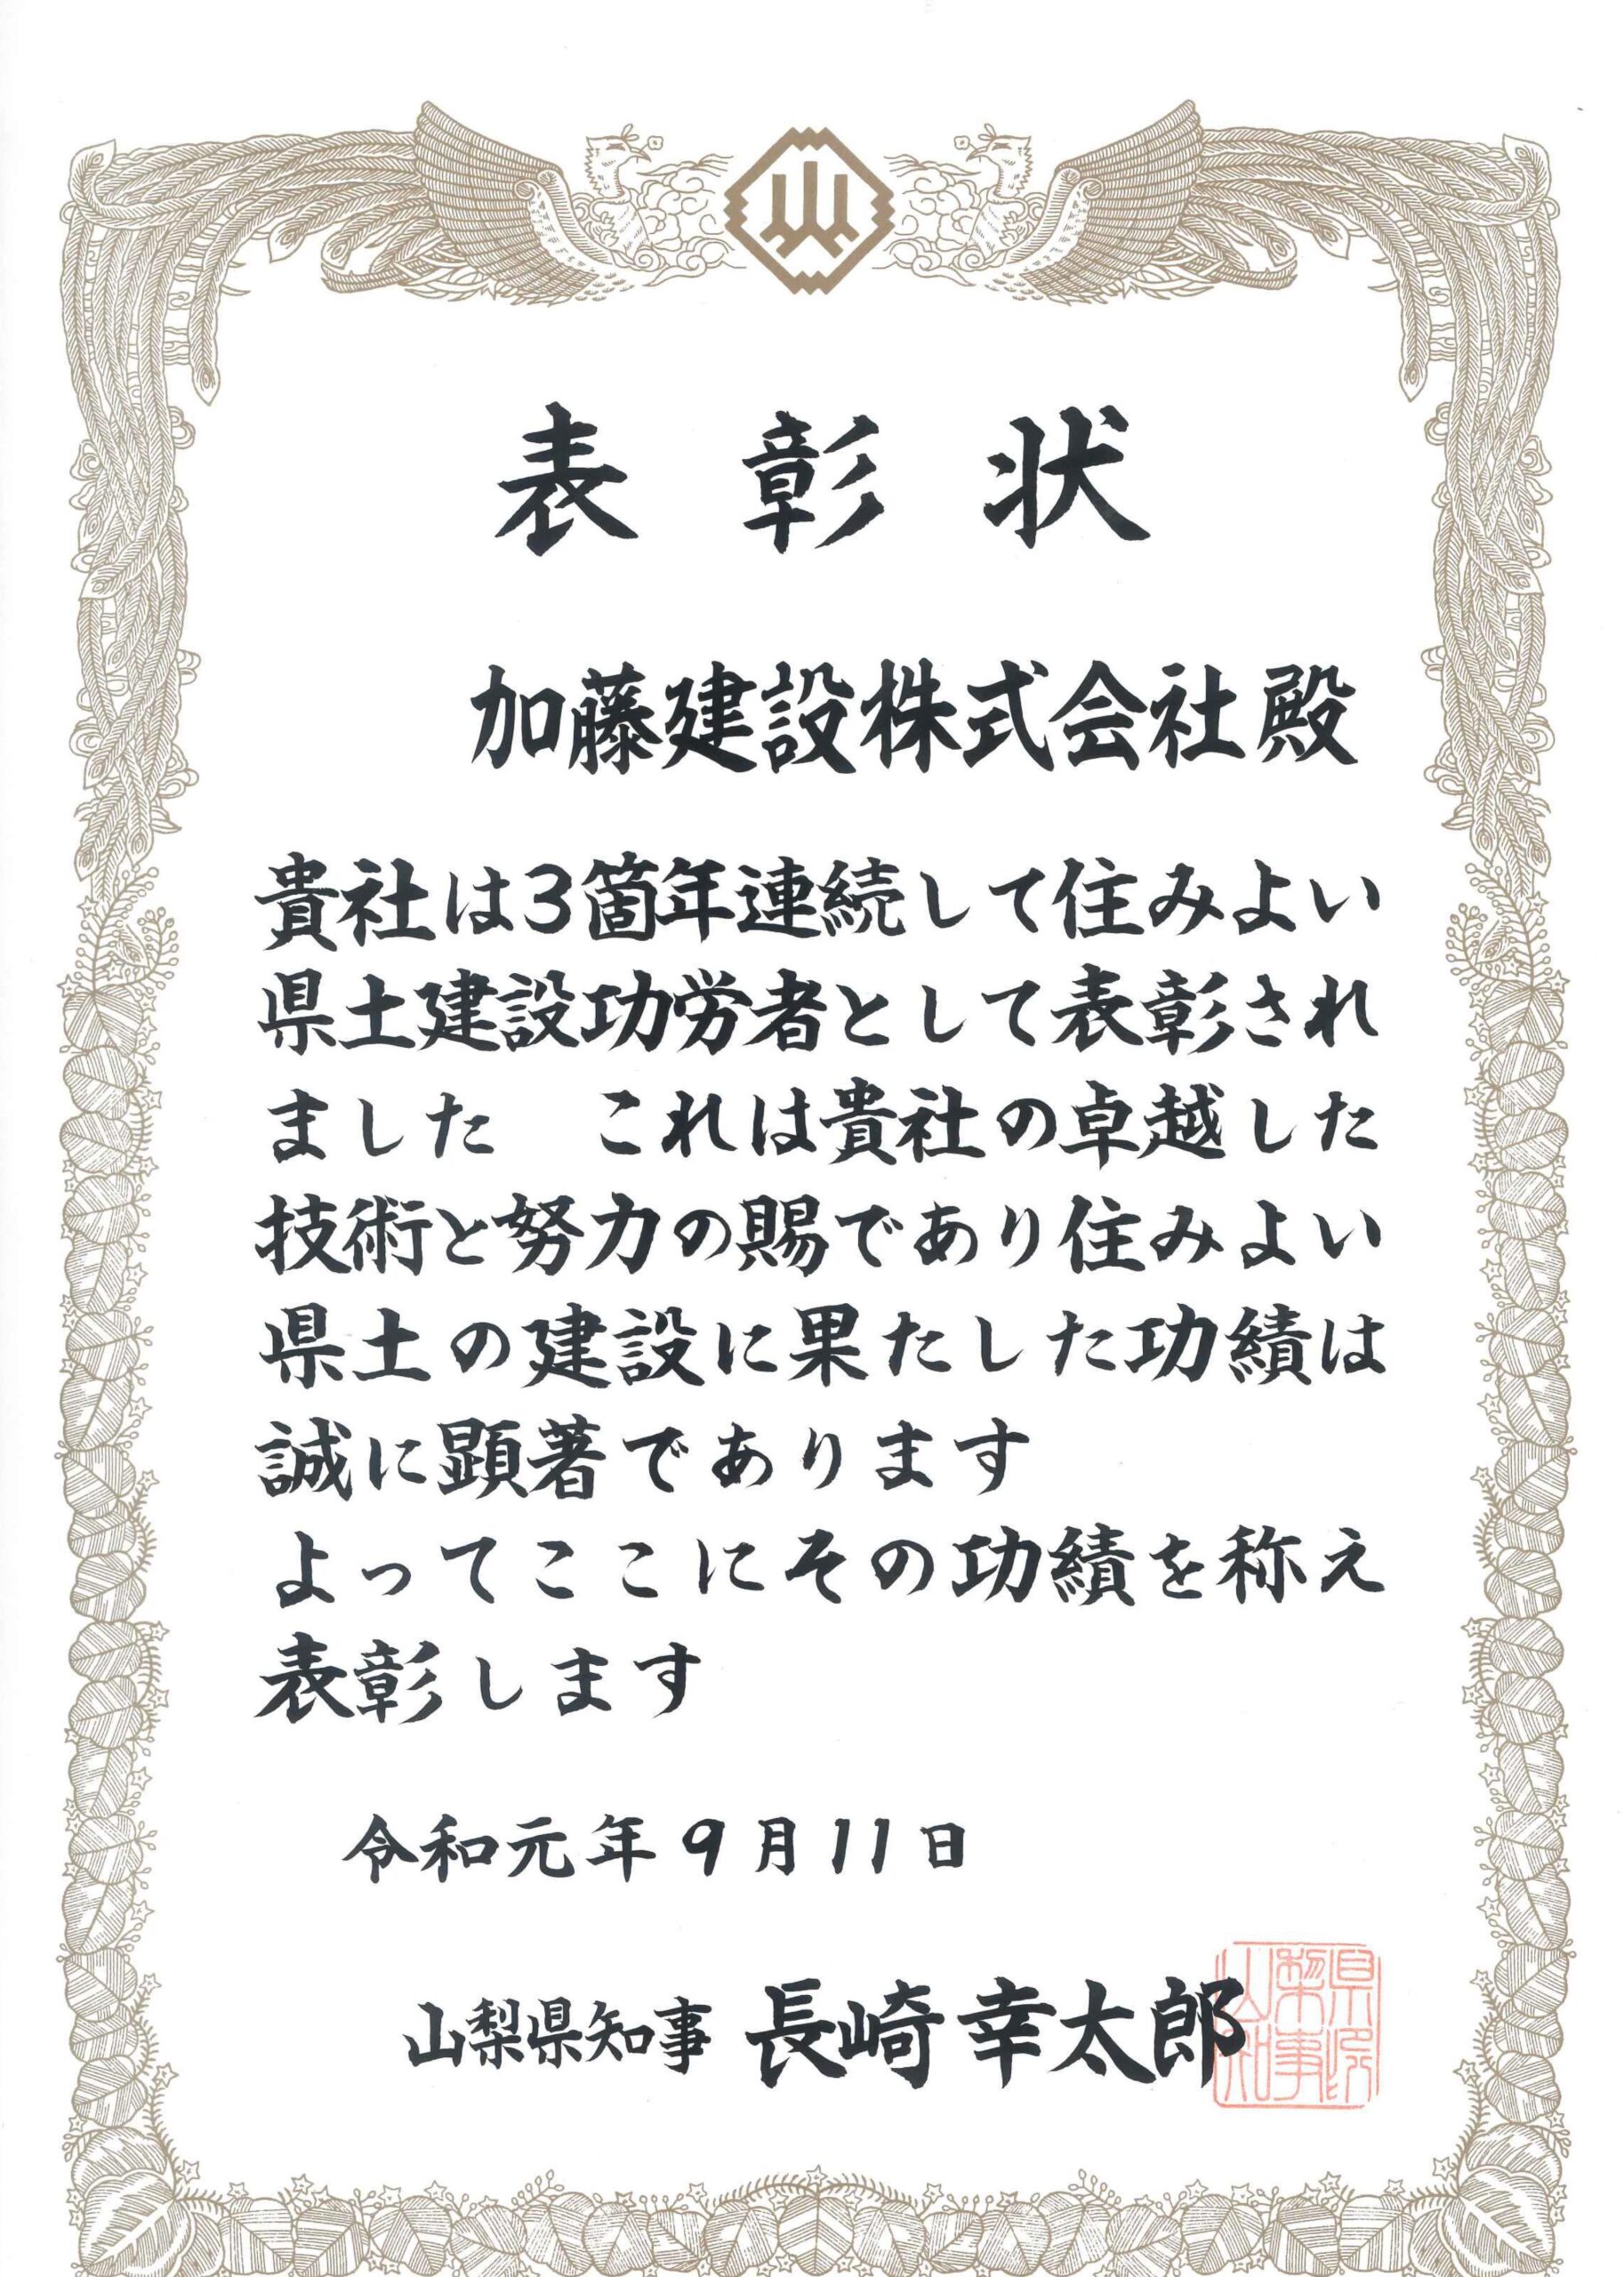 表彰状
加藤建設株式会社殿
貴社は3箇年連続して住みよい
県土建設功労者として表彰され
ました　これは貴社の卓越した
技術と努力の賜であり住みよい
県土の建設に果たした功績は
誠に顕著であります
よってここにその功績を称え
表彰します
令和元年9月11日
山梨県知事 長崎幸太郎